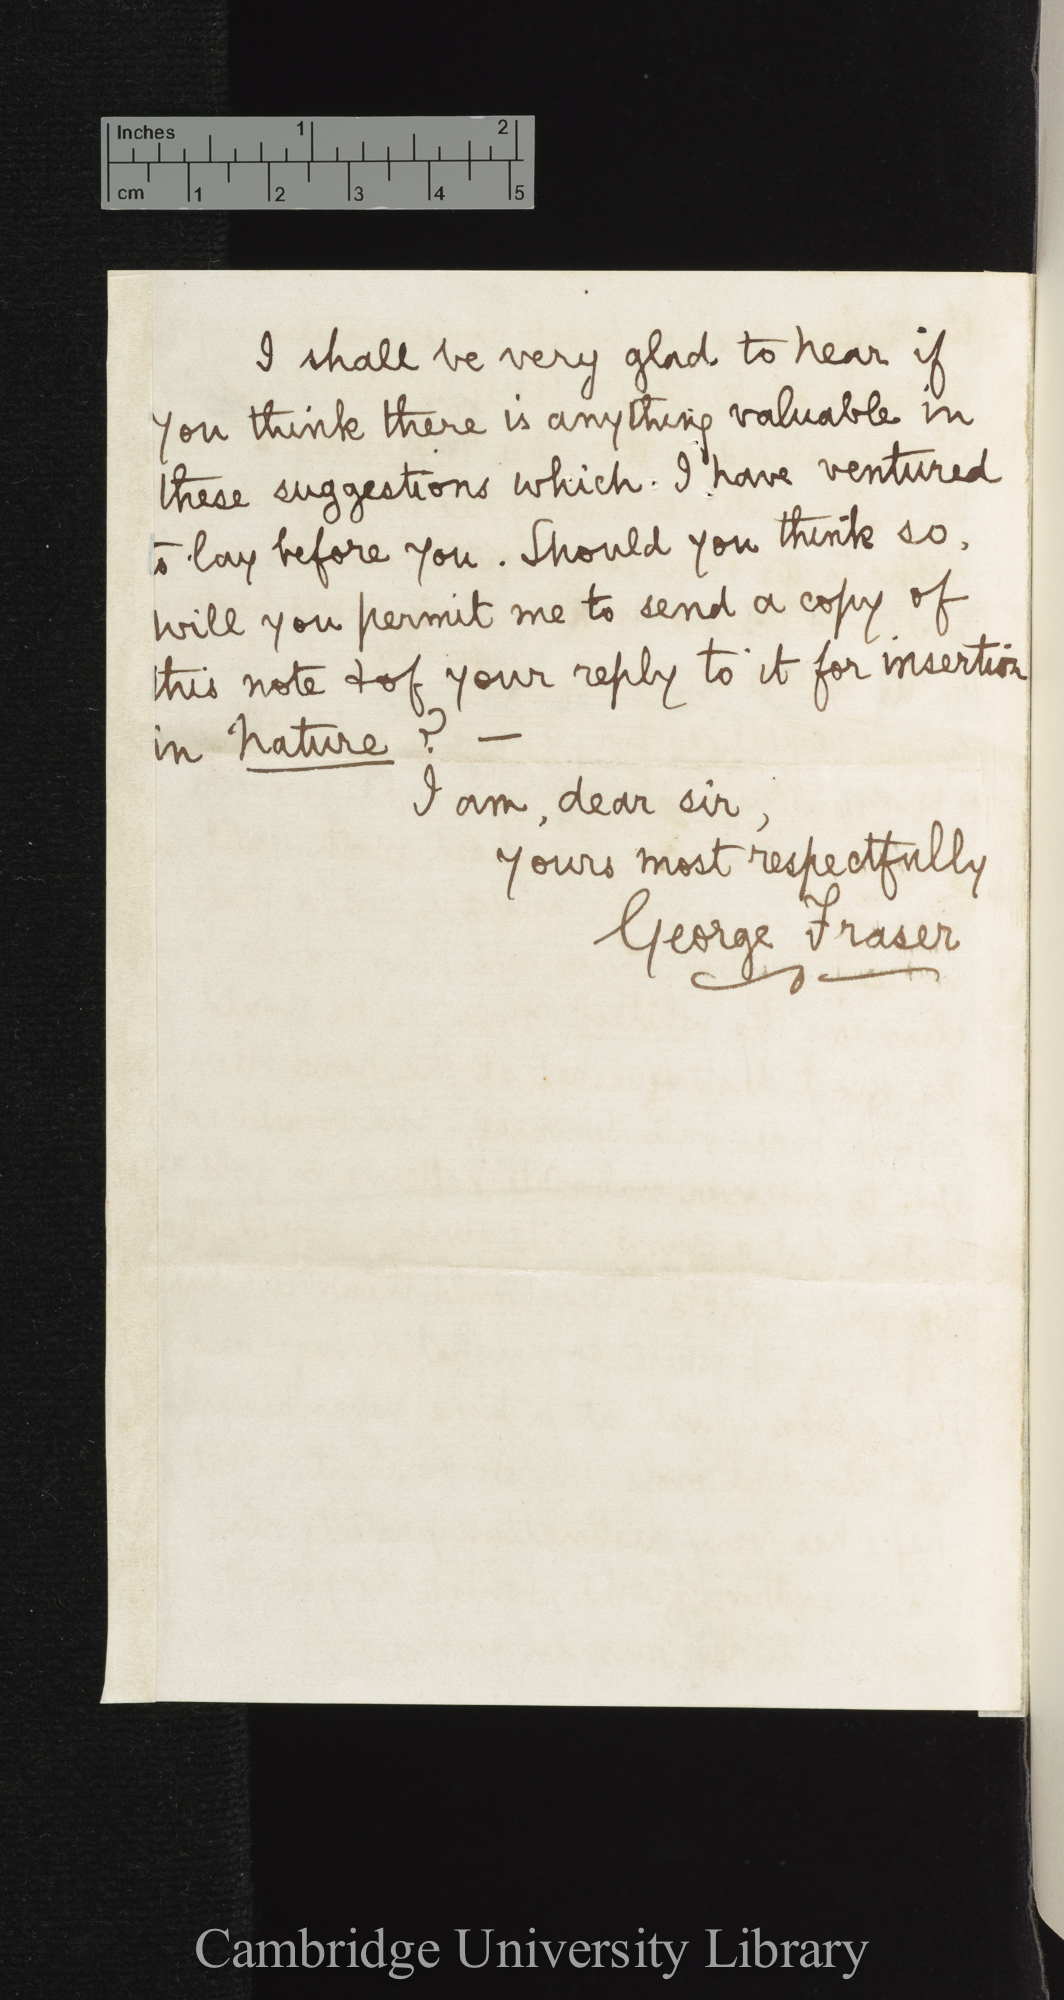 Inches 1 2
cm 1 2 3 4 5
I shall be very glad to hear if
you think there is anything valuable in
these suggestions which I have ventured
to lay before you. Should you think so,
will you permit me to send a copy of
this note & of your reply to it for insertion
in Nature? —
I am, dear sir,
yours most respectfully
George Fraser
Cambridge University Library